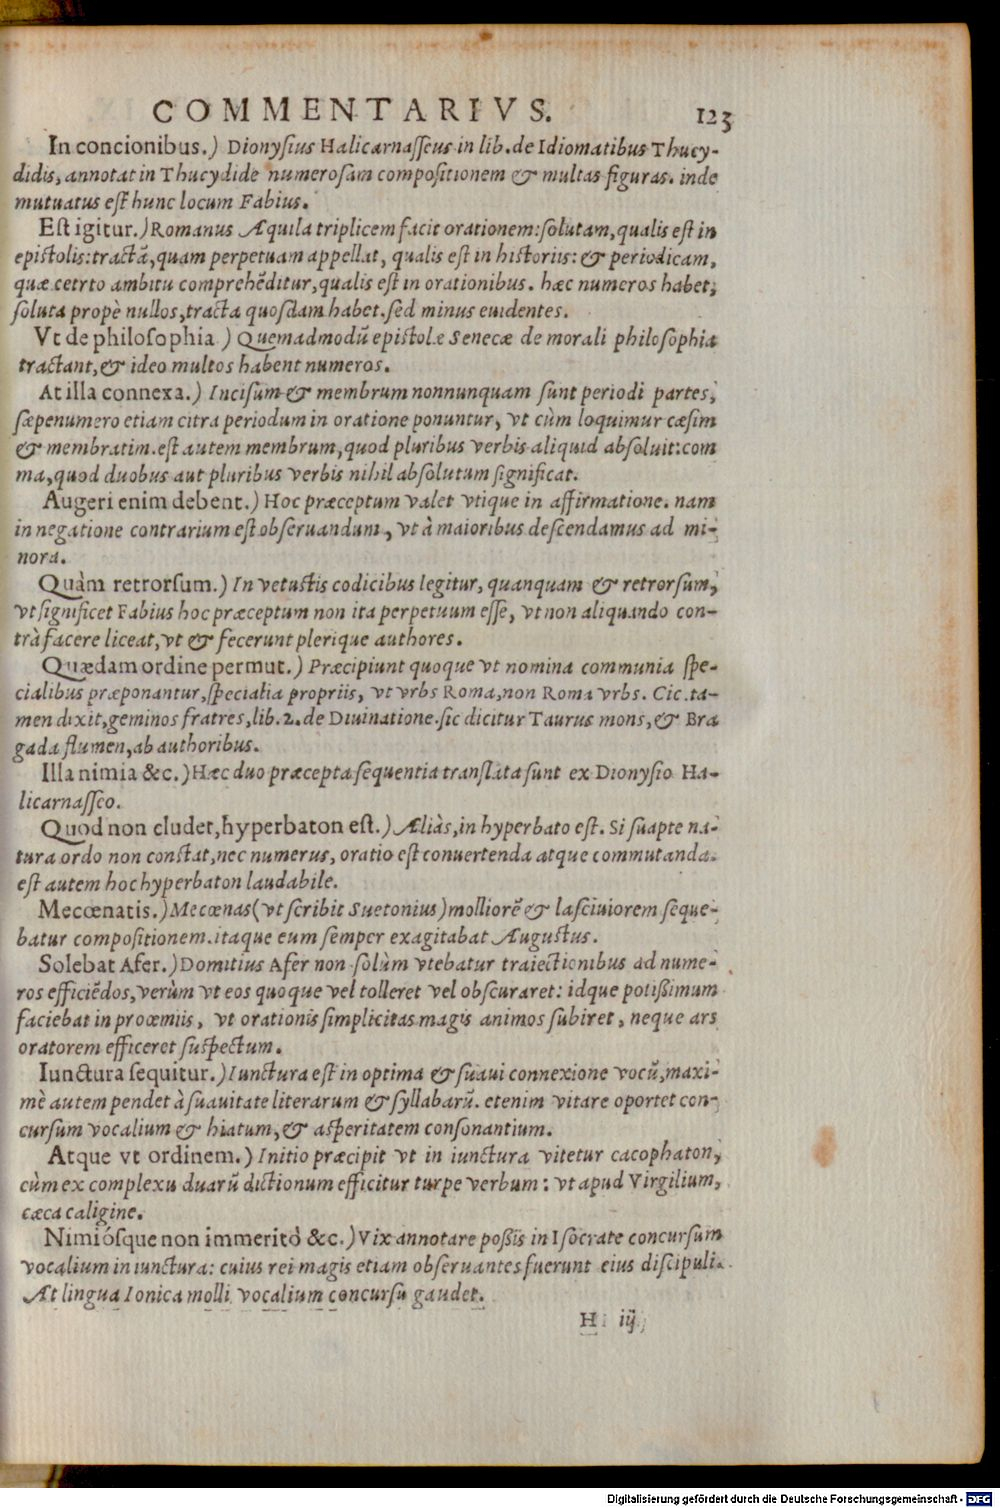 COMMENTARIVS. 123
In concionibus.) Dionysius Halicarnasseus in lib. de Idiomatibus Thucy-
didis, annotat in Thucydide numerosam compositionem & multas figuras. inde
mutuatus est hunc locum Fabius.
Est igitur.) Romanus Aquila triplicem facit orationem: solutam, qualis est in
epistolis: tractã, quam perpetuam appellat, qualis est in historiis: & periodicam,
quæ cetrto ambitu comprehẽditur, qualis est in orationibus. hæc numeros habet;
soluta propè nullos, tracta quosdam habet. sed minus euidentes.
Vt de philosophia.) Quemadmodũ epistolæ Senecæ de morali philosophia
tractant, & ideo multos habent numeros.
At illa connexa.) Incisum & membrum nonnunquam sunt periodi partes,
sæpenumero etiam citra periodum in oratione ponuntur, vt cùm loquimur cæsim
& membratim. est autem membrum, quod pluribus verbis aliquid absoluit: com
ma, quod duobus aut pluribus verbis nihil absolutum significat.
Augeri enim debent.) Hoc præceptum valet vtique in affirmatione. nam
in negatione contrarium est obseruandum, vt à maioribus descendamus ad mi-
nora.
Quàm retrorsum.) In vetustis codicibus legitur, quanquam & retrorsum,
vt significet Fabius hoc præceptum non ita perpetuum esse, vt non aliquando con-
trà facere liceat, vt & fecerunt plerique authores.
Quædam ordine permut.) Præcipiunt quoque vt nomina communia spe-
cialibus præponantur, specialia propriis, vt vrbs Roma, non Roma vrbs. Cic. ta-
men dixit, geminos fratres, lib. 2. de Diuinatione. sic dicitur Taurus mons, & Bra
gada flumen, ab authoribus.
Illa nimia &c.) Hæc duo præcepta sequentia translata sunt ex Dionysio Ha-
licarnasseo.
Quod non cludet, hyperbaton est.) Aliàs, in hyperbato est. Si suapte na-
tura ordo non constat, nec numerus, oratio est conuertenda atque commutanda.
est autem hoc hyperbaton laudabile.
Mecœnatis.) Mecœnas (vt scribit Suetonius) molliorẽ & lasciuiorem seque-
batur compositionem. itaque eum semper exagitabat Augustus.
Solebat Afer.) Domitius Afer non solùm vtebatur traiectionibus ad nume-
ros efficiẽdos, verùm vt eos quoque vel tolleret vel obscuraret: idque potißimum
faciebat in proœmiis, vt orationis simplicitas magis animos subiret, neque ars
oratorem efficeret suspectum.
Iunctura sequitur.) Iunctura est in optima & suaui connexione vocũ, maxi-
mè autem pendet à suauitate literarum & syllabarũ. etenim vitare oportet con-
cursum vocalium & hiatum, & asperitatem consonantium.
Atque vt ordinem.) Initio præcipit vt in iunctura vitetur cacophaton,
cùm ex complexu duarũ dictionum efficitur turpe verbum: vt apud Virgilium,
cæca caligine.
Nimiósque non immeritò &c.) Vix annotare poßis in Isocrate concursum
vocalium in iunctura: cuius rei magis etiam obseruantes fuerunt eius discipuli.
At lingua Ionica molli vocalium concursu gaudet.
H iij
Digitalisierung gefördert durch die Deutsche Forschungsgemeinschaft - DFG